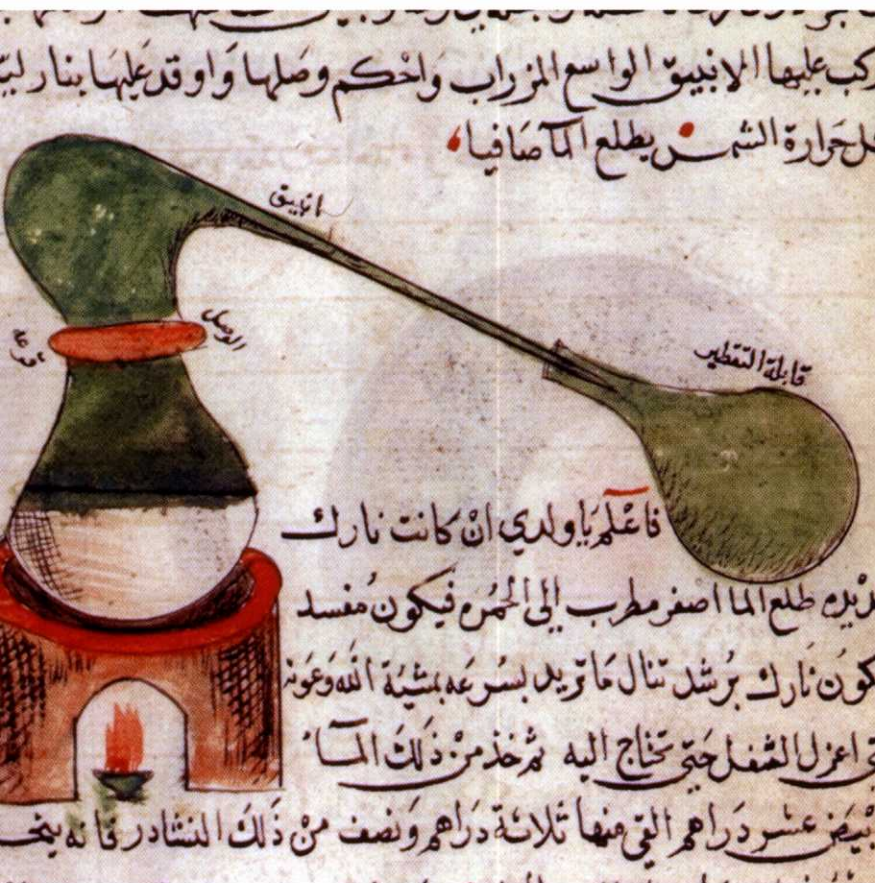 ركب عليها الانبيق الواسع المزراب واحكم وصلها واوقد عليها بنار
حرارة الشمس يطلع المآ صافيا
انبيق
الوصل
قرعه
قابلة التقطير
فاعْلم يَا ولدي انْ كانت نارك
طلع الما اصفر مطرب إلى الحمره فيكون مُفسد
نارك برُشد تنال مَا تريد بسُرعه بمشيّة الله وعونه
اعزل الثفل حَتى تحتاج اليه ثم خذ منْ ذلكَ المآ
عشر دَراهم القي منها ثلاثة دَراهم وَنصف منْ ذلكَ النشادر فانه